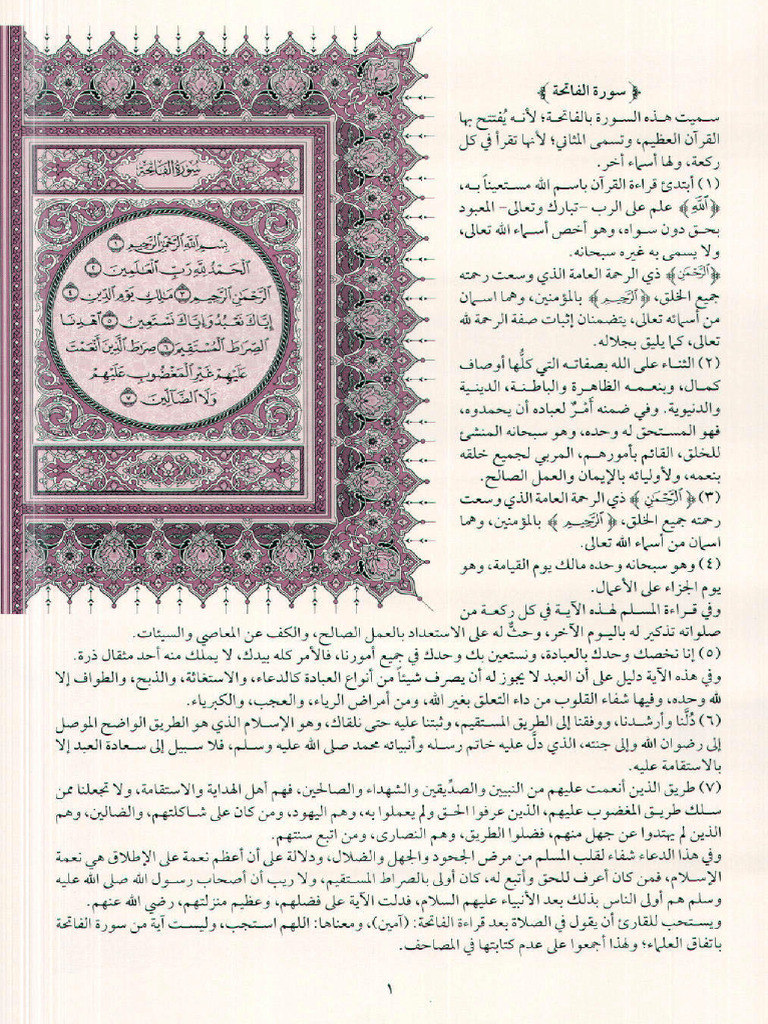 ﴿ سورة الفاتحة ﴾
سميت هذه السورة بالفاتحة؛ لأنه يُفتتح بها
القرآن العظيم، وتسمى المثاني؛ لأنها تقرأ في كل
ركعة، ولها أسماء أخر.
(١) أبتدئ قراءة القرآن باسم الله مستعيناً به،
﴿ ٱللَّهِ ﴾ علم على الرب -تبارك وتعالى- المعبود
بحق دون سواه، وهو أخص أسماء الله تعالى،
ولا يسمى به غيره سبحانه.
﴿ٱلرَّحْمَٰنِ﴾ ذي الرحمة العامة الذي وسعت رحمته
جميع الخلق، ﴿ٱلرَّحِيمِ﴾ بالمؤمنين، وهما اسمان
من أسمائه تعالى، يتضمنان إثبات صفة الرحمة لله
تعالى، كما يليق بجلاله.
(٢) الثناء على الله بصفاته التي كلُّها أوصاف
كمال، وبنعمه الظاهرة والباطنة، الدينية
والدنيوية. وفي ضمنه أَمْرٌ لعباده أن يحمدوه،
فهو المستحق له وحده، وهو سبحانه المنشئ
للخلق، القائم بأمورهم، المربي لجميع خلقه
بنعمه، ولأوليائه بالإيمان والعمل الصالح.
(٣) ﴿ٱلرَّحْمَٰنِ﴾ ذي الرحمة العامة الذي وسعت
رحمته جميع الخلق، ﴿ٱلرَّحِيمِ﴾ بالمؤمنين، وهما
اسمان من أسماء الله تعالى.
(٤) وهو سبحانه وحده مالك يوم القيامة، وهو
يوم الجزاء على الأعمال.
وفي قراءة المسلم لهذه الآية في كل ركعة من
صلواته تذكير له باليوم الآخر، وحثٌّ له على الاستعداد بالعمل الصالح، والكف عن المعاصي والسيئات.
(٥) إنا نخصك وحدك بالعبادة، ونستعين بك وحدك في جميع أمورنا، فالأمر كله بيدك، لا يملك منه أحد مثقال ذرة.
وفي هذه الآية دليل على أن العبد لا يجوز له أن يصرف شيئاً من أنواع العبادة كالدعاء، والاستغاثة، والذبح، والطواف إلا
لله وحده، وفيها شفاء القلوب من داء التعلق بغير الله، ومن أمراض الرياء، والعجب، والكبرياء.
(٦) دُلَّنا وأرشدنا، ووفقنا إلى الطريق المستقيم، وثبتنا عليه حتى نلقاك، وهو الإسلام الذي هو الطريق الواضح الموصل
إلى رضوان الله وإلى جنته، الذي دلَّ عليه خاتم رسله وأنبيائه محمد صلى الله عليه وسلم، فلا سبيل إلى سعادة العبد إلا
بالاستقامة عليه.
(٧) طريق الذين أنعمت عليهم من النبيين والصدِّيقين والشهداء والصالحين، فهم أهل الهداية والاستقامة، ولا تجعلنا ممن
سلك طريق المغضوب عليهم، الذين عرفوا الحق ولم يعملوا به، وهم اليهود، ومن كان على شاكلتهم، والضالين، وهم
الذين لم يهتدوا عن جهل منهم، فضلوا الطريق، وهم النصارى، ومن اتبع سنتهم.
وفي هذا الدعاء شفاء لقلب المسلم من مرض الجحود والجهل والضلال، ودلالة على أن أعظم نعمة على الإطلاق هي نعمة
الإسلام، فمن كان أعرف للحق وأتبع له، كان أولى بالصراط المستقيم، ولا ريب أن أصحاب رسول الله صلى الله عليه
وسلم هم أولى الناس بذلك بعد الأنبياء عليهم السلام، فدلت الآية على فضلهم، وعظيم منزلتهم، رضي الله عنهم.
ويستحب للقارئ أن يقول في الصلاة بعد قراءة الفاتحة: (آمين)، ومعناها: اللهم استجب، وليست آية من سورة الفاتحة
باتفاق العلماء؛ ولهذا أجمعوا على عدم كتابتها في المصاحف.
سُورَةُ الفَاتِحَةِ
بِسْمِ ٱللَّهِ ٱلرَّحْمَٰنِ ٱلرَّحِيمِ ١
ٱلْحَمْدُ لِلَّهِ رَبِّ ٱلْعَٰلَمِينَ ٢
ٱلرَّحْمَٰنِ ٱلرَّحِيمِ ٣ مَٰلِكِ يَوْمِ ٱلدِّينِ ٤
إِيَّاكَ نَعْبُدُ وَإِيَّاكَ نَسْتَعِينُ ٥ ٱهْدِنَا
ٱلصِّرَٰطَ ٱلْمُسْتَقِيمَ ٦ صِرَٰطَ ٱلَّذِينَ أَنْعَمْتَ
عَلَيْهِمْ غَيْرِ ٱلْمَغْضُوبِ عَلَيْهِمْ
وَلَا ٱلضَّآلِّينَ ٧
١